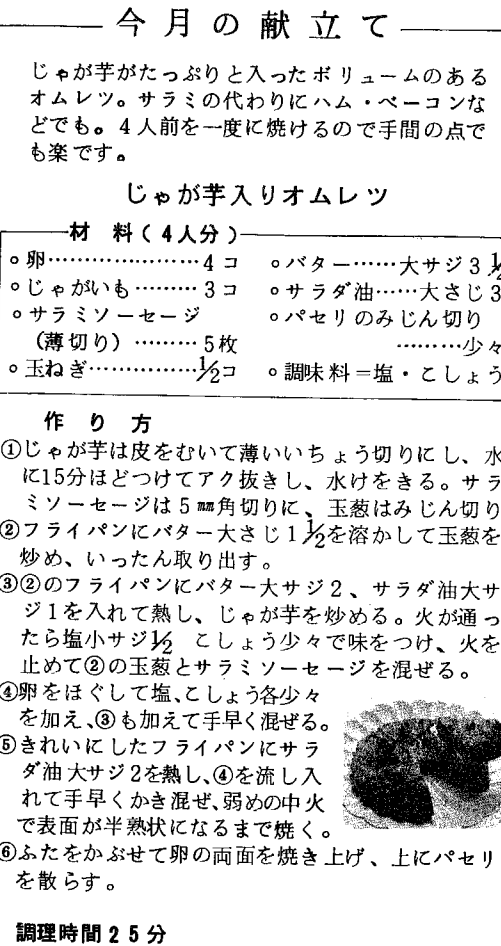 今月の献立て
じゃが芋がたっぷりと入ったボリュームのある
オムレツ。サラミの代わりにハム・ベーコンな
どでも。4人前を一度に焼けるので手間の点で
も楽です。
じゃが芋入りオムレツ
材 料(4人分)
○卵…………………4コ
○じゃがいも………3コ
○サラミソーセージ
(薄切り)………5枚
○玉ねぎ……………½コ
○バター……大サジ3½
○サラダ油……大さじ3
○パセリのみじん切り
………少々
○調味料=塩・こしょう
作り方
①じゃが芋は皮をむいて薄いいちょう切りにし、水
に15分ほどつけてアク抜きし、水けをきる。サラ
ミソーセージは5㎜角切りに、玉葱はみじん切り
②フライパンにバター大さじ1½を溶かして玉葱を
炒め、いったん取り出す。
③②のフライパンにバター大サジ2、サラダ油大サ
ジ1を入れて熱し、じゃが芋を炒める。火が通っ
たら塩小サジ½ こしょう少々で味をつけ、火を
止めて②の玉葱とサラミソーセージを混ぜる。
④卵をほぐして塩、こしょう各少々
を加え、③も加えて手早く混ぜる。
⑤きれいにしたフライパンにサラ
ダ油大サジ2を熱し、④を流し入
れて手早くかき混ぜ、弱めの中火
で表面が半熟状になるまで焼く。
⑥ふたをかぶせて卵の両面を焼き上げ、上にパセリ
を散らす。
調理時間25分